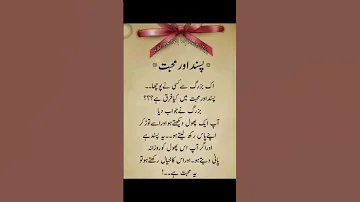 پسند اور محبت
اک بزرگ سے کسی نے پوچھا۔۔
پسند اور محبت میں کیا فرق ہے؟؟؟
بزرگ نے جواب دیا
آپ ایک پھول دیکھتے ہو اور اسے توڑ کر
اپنے پاس رکھ لیتے ہو۔۔ یہ پسند ہے
اور اگر آپ اس پھول کو روزانہ
پانی دیتے ہو۔ اور اس کا خیال رکھتے ہو تو
یہ محبت ہے۔۔!